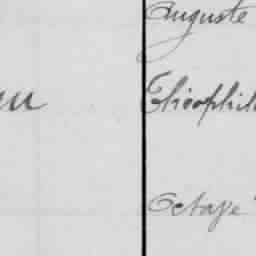 Auguste
Théophil
Octave